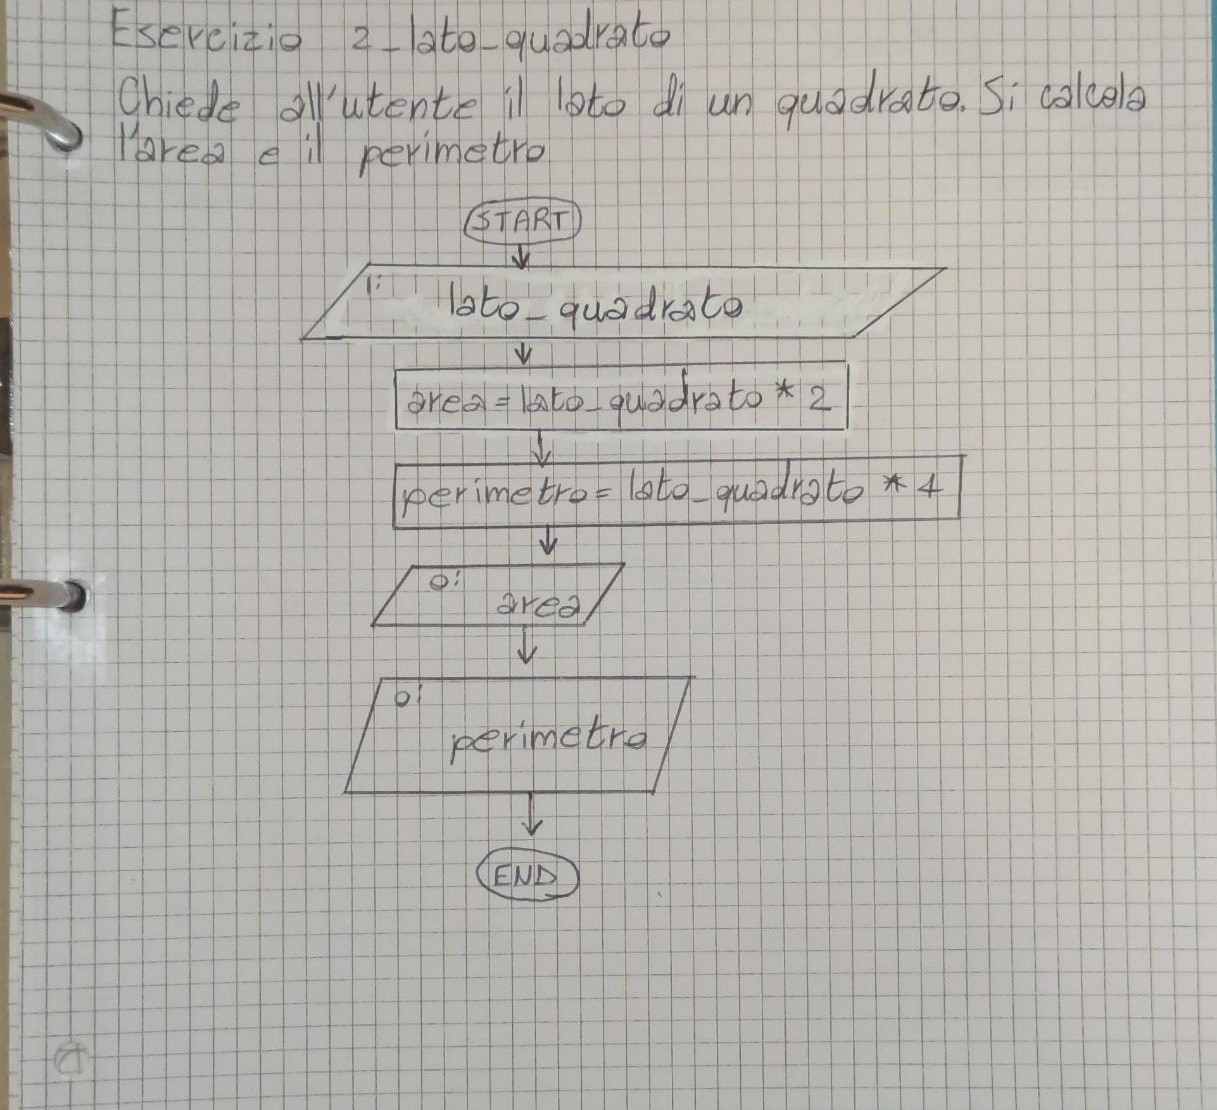 Esercizio 2_lato_quadrato
Chiede all'utente il lato di un quadrato. Si calcola
l'area e il perimetro
START
I:
lato_quadrato
area=lato_quadrato * 2
perimetro= lato_quadrato * 4
O:
area
O:
perimetro
END